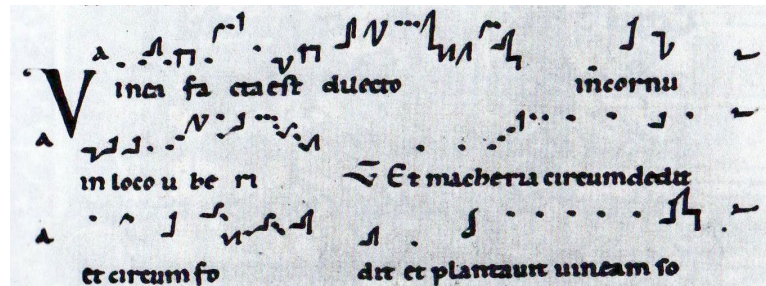 Vinea fa cta est dilecto in cornu
in loco u be ri ℣ Et macheria circumdedit
et circum fo dit et plantauit uineam so